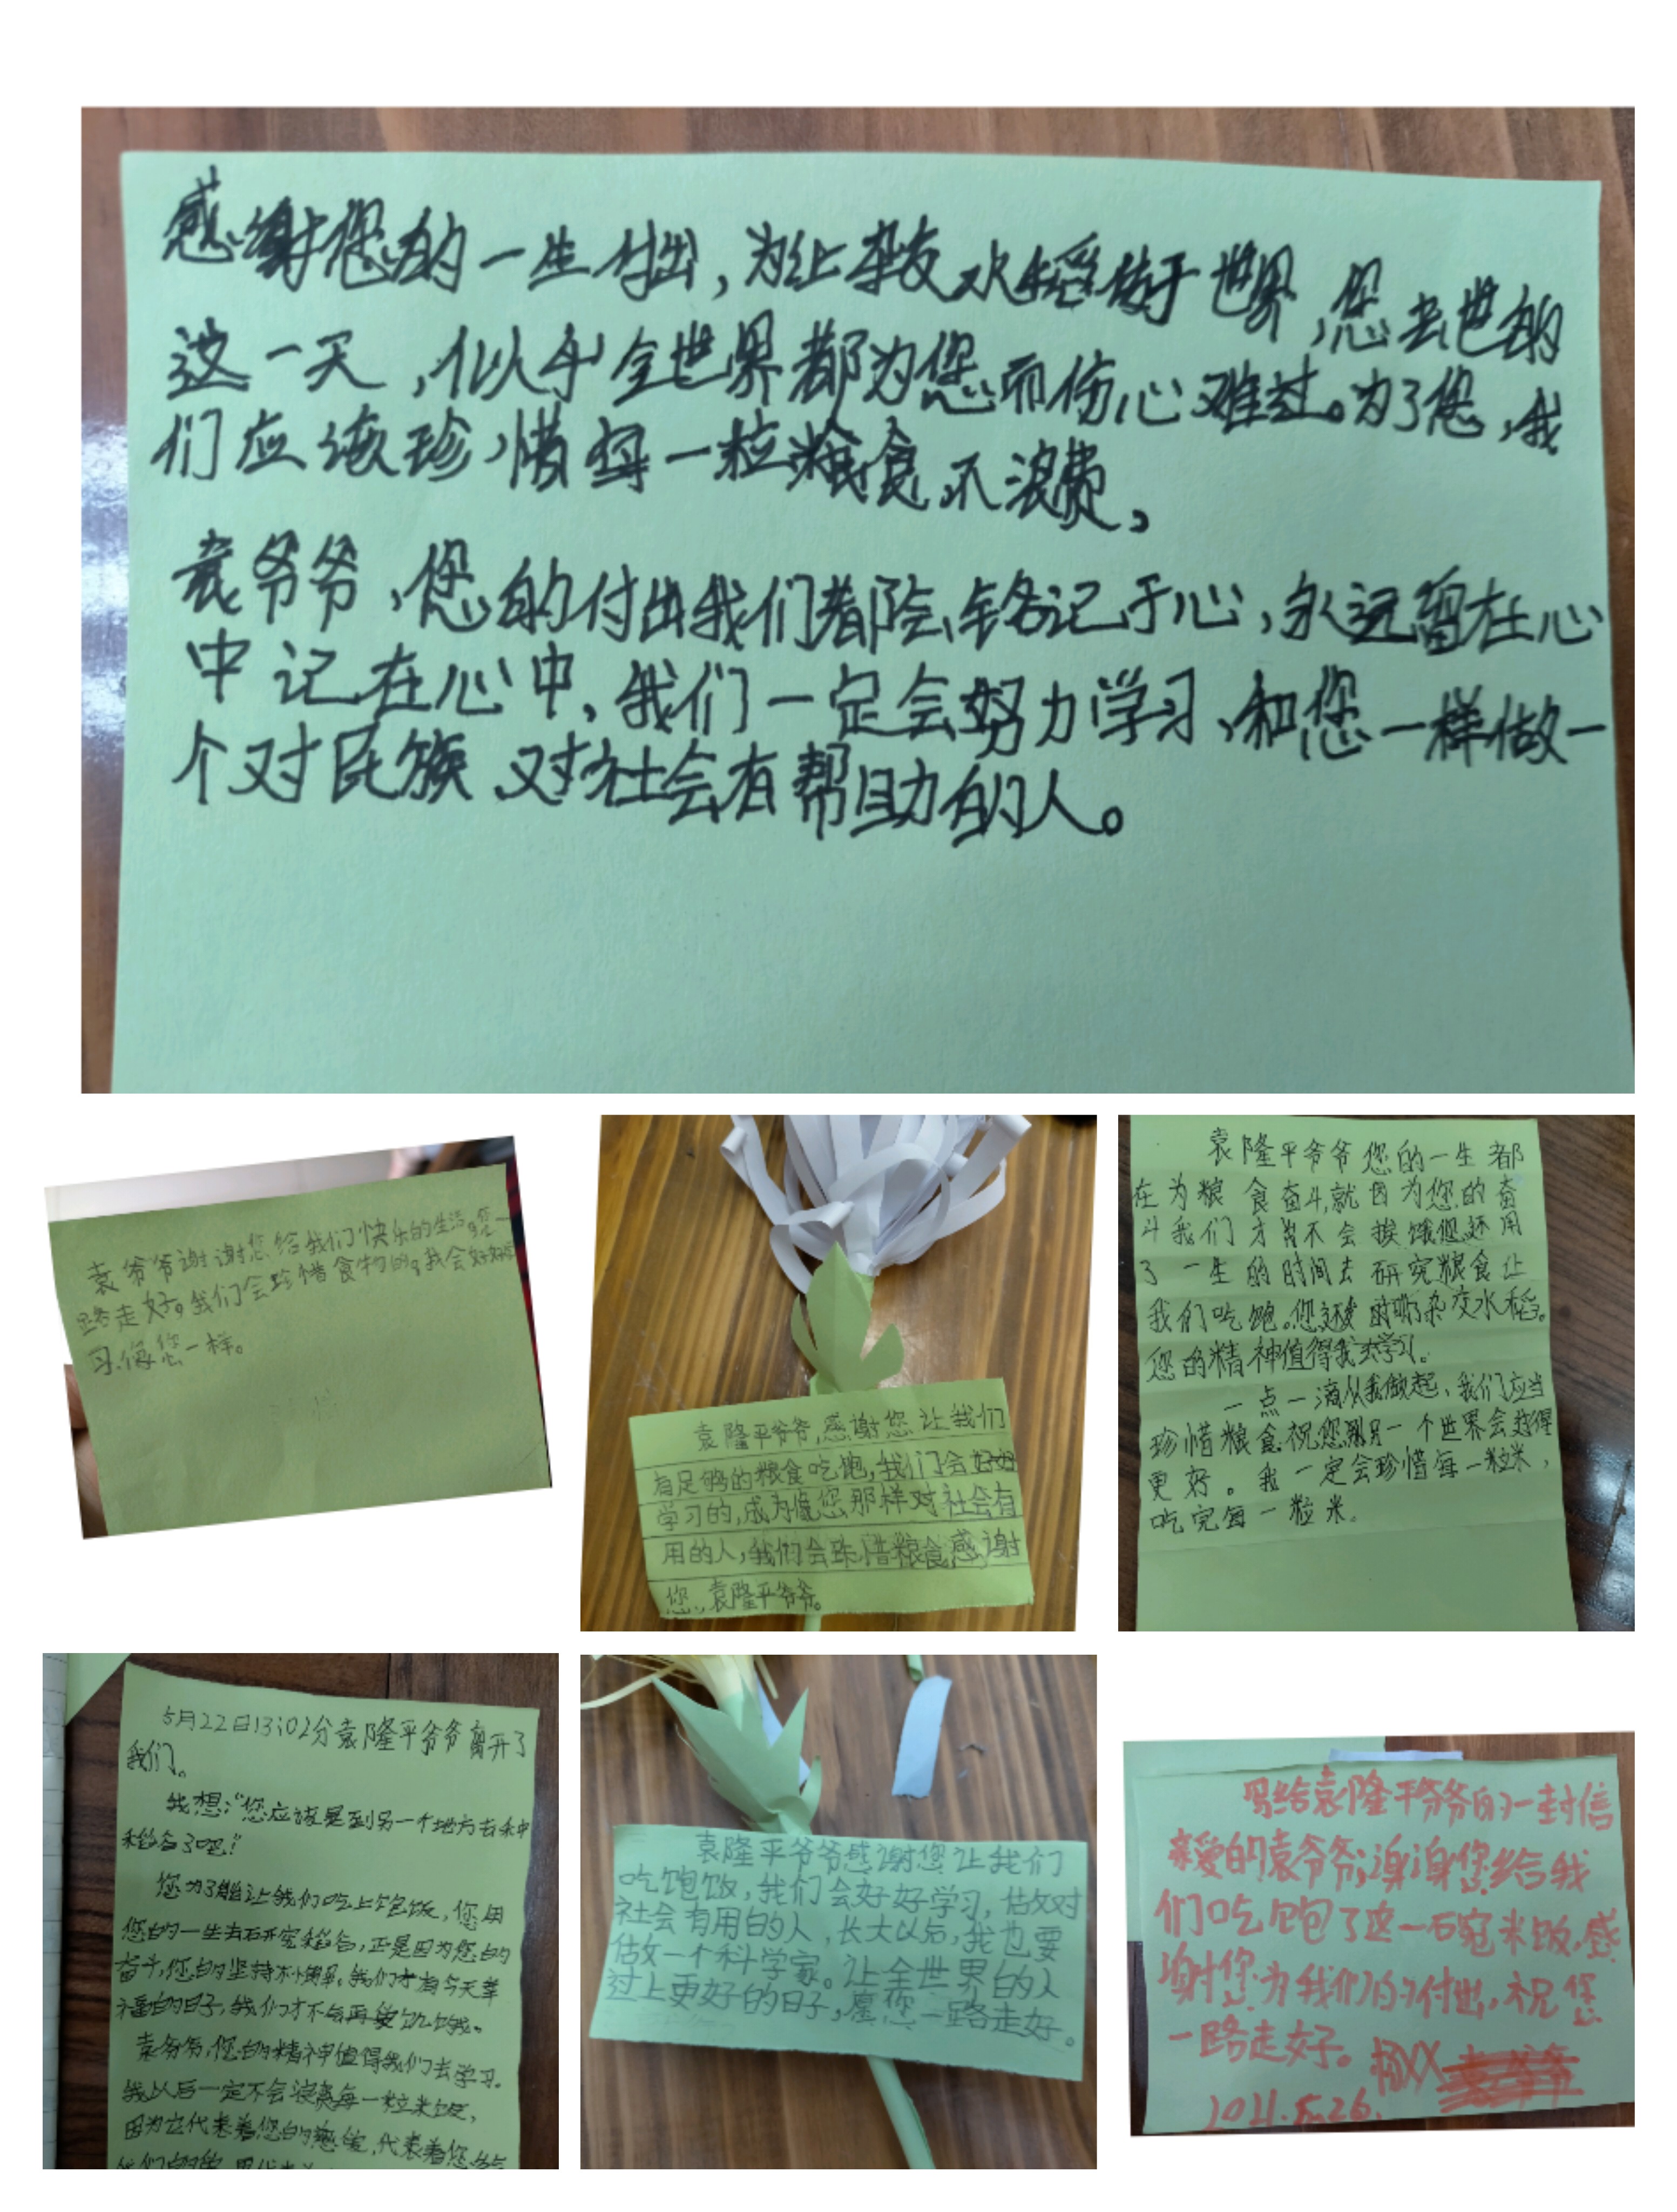 感谢您的一生付出，为让杂交水稻于世界，您去世的
这一天，似乎全世界都为您而伤心难过。为了您，我
们应该珍惜每一粒粮食，不浪费，
袁爷爷，您的付出我们都会铭记于心，永远留在心
中记在心中，我们一定会努力学习，和您一样做一
个对民族、对社会有帮助的人。
袁爷爷谢谢您给我们快乐的生活。您一
路走好。我们会珍惜食物的。我会好好学
习，像您一样。
袁隆平爷爷，感谢您让我们
有足够的粮食吃饱，我们会好好
学习的，成为像您那样对社会有
用的人，我们会珠惜粮食，感谢
您，袁隆平爷爷。
袁隆平爷爷您的一生都
在为粮食奋斗，就因为您的奋
斗我们才不会挨饿您还用
了一生的时间去研究粮食让
我们吃饱。您还发明杂交水稻。
您的精神值得我去学习。
一点一滴从我做起，我们应当
珍惜粮食，祝您到另一个世界会过得
更好。我一定会珍惜每一粒米，
吃完每一粒米。
5月22日13:02分袁隆平爷爷离开了
我们。
我想：“您应该是到另一个地方去种
稻谷了吧！”
您为了能让我们吃上饱饭，您用
您的一生去研究稻谷，正是因为您的
奋斗，您的坚持不懈，我们才有今天幸
福的日子，我们才不会再饥饿。
袁爷爷，您的精神值得我们去学习。
我以后一定不会浪费每一粒米饭，
因为它代表着您的，代表着您给
袁隆平爷爷感谢您让我们
吃饱饭，我们会好好学习，估做对
社会有用的人，长大以后，我也要
做一个科学家。让全世界的人
过上更好的日子，愿您一路走好。
写给袁隆平爷爷的一封信
亲爱的袁爷爷；谢谢您给我
们吃饱了这一碗米饭，感
谢您为我们的付出，祝您
一路走好。杨XX
2021.5.26.